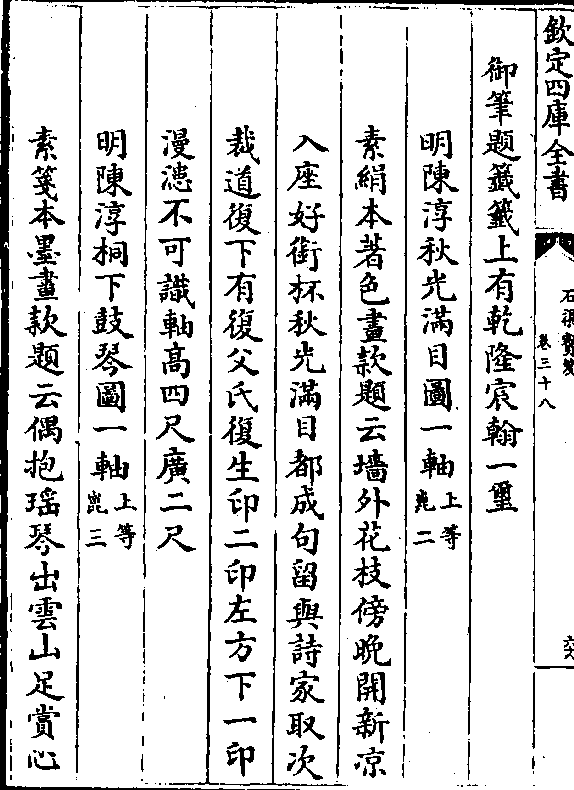 欽定四庫全書
石渠寳笈
卷三十八
六六
御筆題籤籤上有乾隆宸翰一璽
明陳淳秋光滿目圖一軸上等
崑二
素絹本著色畫款題云墻外花枝傍晩開新凉
入座好銜杯秋光滿目都成句留與詩家取次
裁道復下有復父氏復生印二印左方下一印
漫漶不可識軸高四尺廣二尺
明陳淳桐下鼓琴圖一軸上等
崑三
素箋本墨畫款題云偶抱瑶琴出雲山足賞心